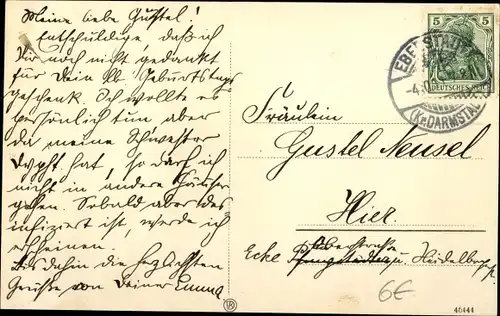 Meine liebe Gustel!
Entschuldige, daß ich
Dir noch nicht gedankt
für Dein lb. Geburtstags
geschenk. Ich wollte es
persönlich tun aber
da meine Schwester
Dypht. hat, so darf ich
nicht in andere Häuser
gehen. Sobald aber das
infiziert ist, werde ich
erscheinen.
Bis dahin die herzlichsten
Grüße von Deiner Emma
5 5
DEUTSCHES REICH
EBERSTADT
(Kr. DARMSTADT)
Fräulein
Gustel Neusel
Hier.
Ecke Oberstraße
Pfungstädter u. Heidelberg
6€
40444